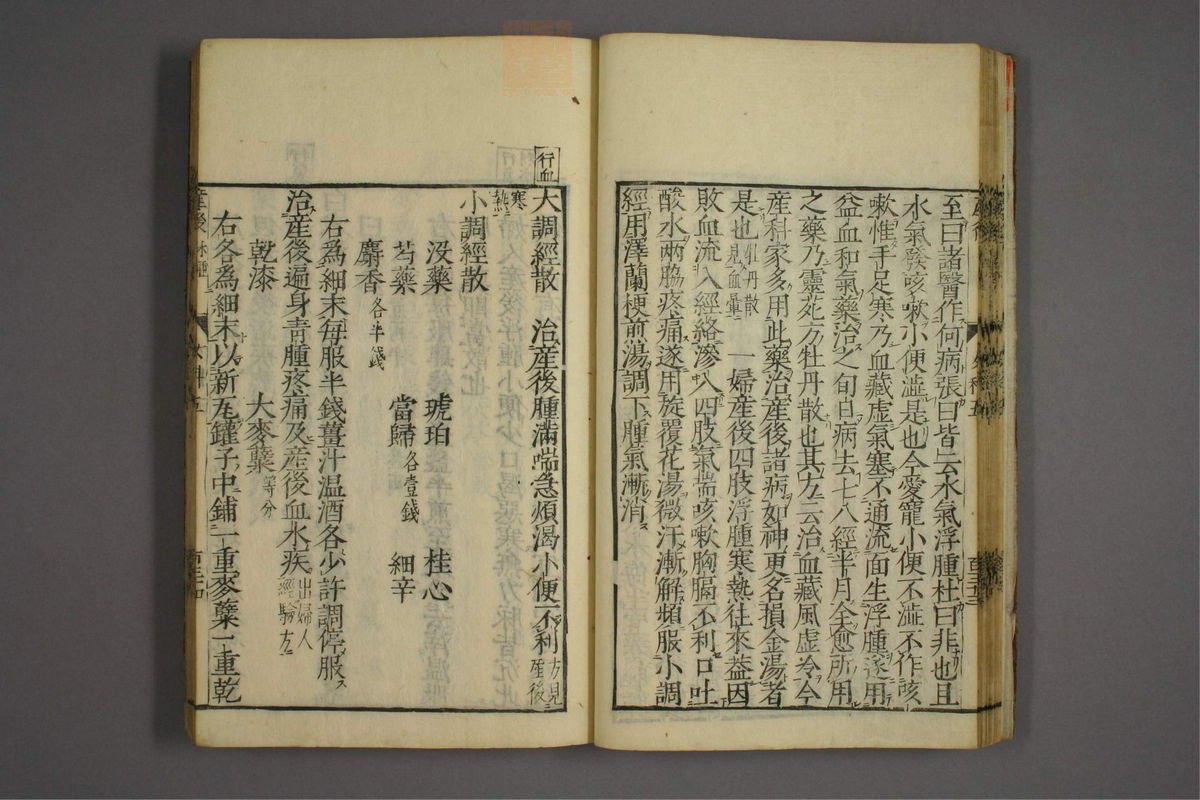 至曰諸醫作何病張曰皆云水氣浮腫杜曰非也且
水氣發咳嗽小便澁是也今愛寵小便不澁不作咳
嗽惟手足寒乃血藏虛氣塞不通流面生浮腫遂用
益血和氣藥治之旬日病去七八經半月全愈所用
之藥乃靈苑方牡丹散也其方云治血藏風虛冷今
産科家多用此藥治産後諸病如神更名損金湯者
是也牡丹散見血暈 一婦産後四肢浮腫寒熱往來蓋因
敗血流入經絡滲入四肢氣喘咳嗽胸膈不利口吐
酸水兩脇疼痛遂用旋覆花湯微汗漸解頻服小調
經用澤蘭梗煎湯調下腫氣漸消
行血
大調經散 治産後腫滿喘急煩渴小便不利方見產後
寒熱
小調經散
沒藥 琥珀 桂心
芍藥 當歸各壹錢 細辛
麝香各半錢
右爲細末每服半錢薑汁温酒各少許調停服
治産後遍身靑腫疼痛及産後血水疾出婦人經驗方
乾漆 大麥糵等分
右各爲細末以新瓦罐子中鋪一重麥糵一重乾
産後